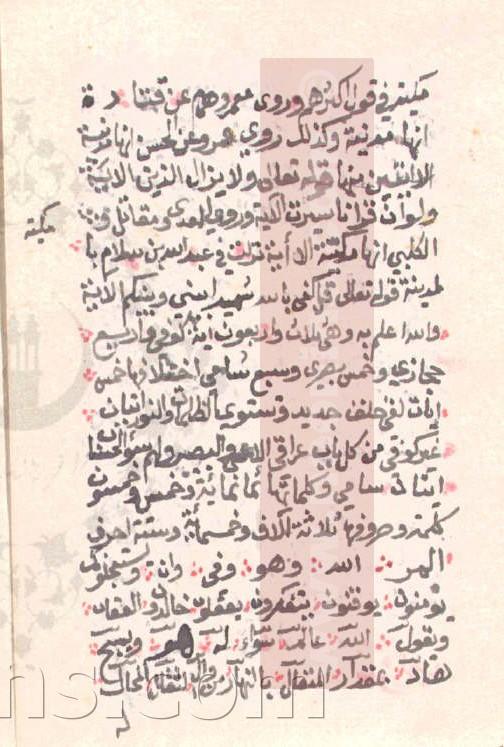 مكية في قول اكثرهم وروى معمر وهم عن قتادة
انها مدنية وكذلك روي عمرو عن الحسن انها مدنية
الا ايتين منها قوله تعالى ولا يزال الذين الاية
ولو ان قرانا سيرت الاية وروي المعدى ومقاتل و
مكية
الكلبي انها مكية الا اية نزلت في عبد الله بن سلام با
لمدينة قوله تعالى قل كفى بالله شهيدا بيني وبينكم الاية
والله اعلم به وهي ثلاث واربعون اية كوفي واربع
حجازي وخمس بصري وسبع شامي اختلافها خمس
ايات لفي خلق جديد وتستوي الظلمات والنور ايتان
غير كوفي من كل باب عراقي الاعمى والبصير ولهم سؤ الحساب
ايتان شامي وكلماتها ثمانمائة وخمس وخمسون
كلمة وحروفها ثلاثة الاف وخمسمائة وستة احرف
المر الله وهو وفي وان ويستعجلونك
يؤمنون يوقنون يتفكرون يعقلون خالدون العقاب
ويقول الله عالم سواء له هو ويسبح
هاد بمقدار المتعال بالنهار من وال الثقال المحال
له